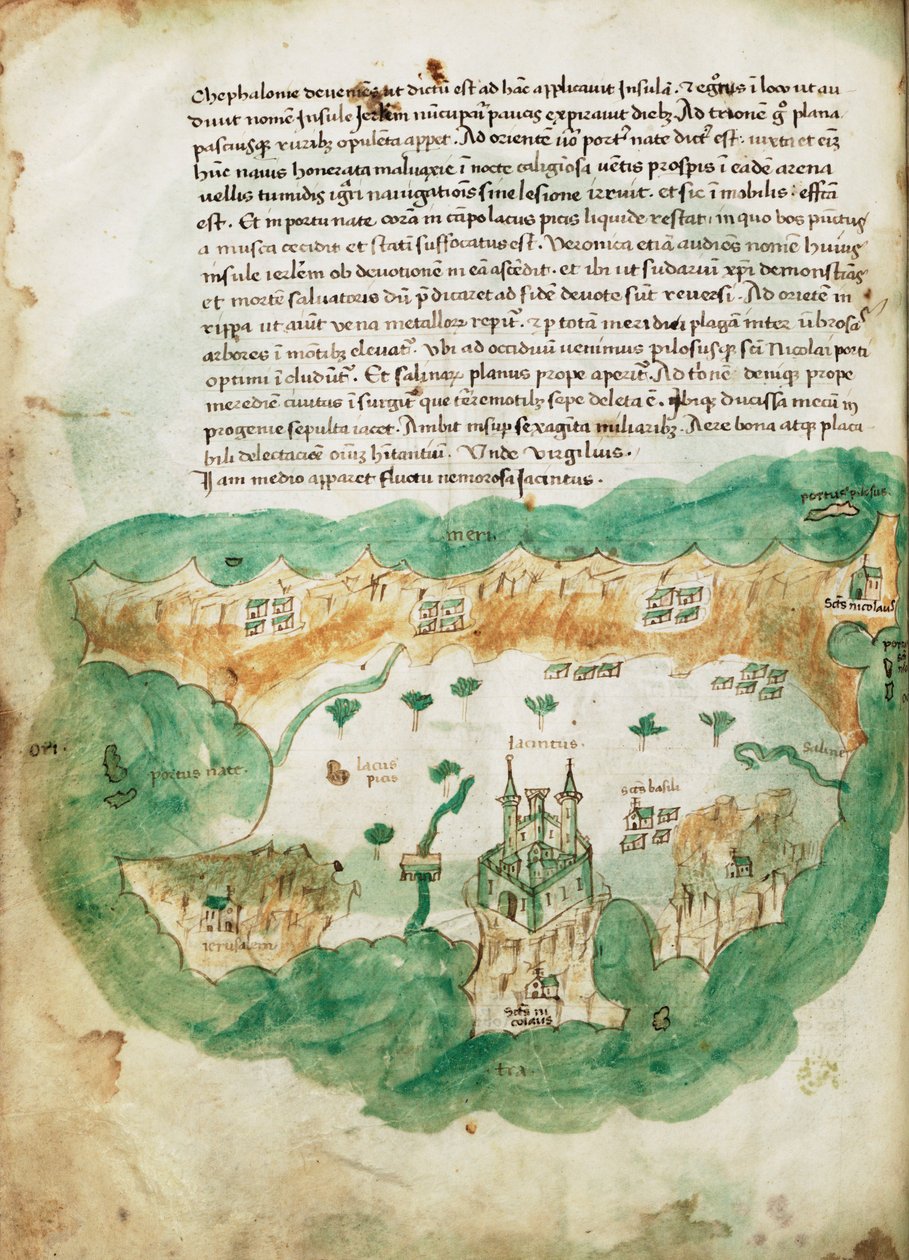 Chephalonie devenies ut dictu est ad hac applicavit Insula. et egrotus i loco ut au
divit nomen Insule Jerlem nucupari paucis expiravit diebz. Ad trione g plana
pascuisqz ruribz opulenta appet. Ad oriente u° port nate dict est. iuxta et eiz
hunc navis honerata malvaxie i nocte caligiosa vetis prospis i eade arena
vellis tumidis igri navigationis sine lesione irruit. et sic imobilis. effcta
est. Et in portu nate coram in capo lacus picis liquide restat. in quo bos puctus
a musca cecidit et stati suffocatus est. Veronica etia audiens nomen huius
insule ierlem ob devotione in ea ascedit. et ibi ut sudariu xpi demonstras
et morte salvatoris du p dicaret ad fide devote sunt reversi. Ad oriete in
rippa ut aiut vena metallorz repit. et p tota meridiei plaga inter ubrosas
arbores i motibz elevat. Ubi ad occiduu venimus pilosusqz scti Nicolai porti
optimi icludut. Et salinarz planus prope aperit. Ad trione deniqz prope
meredie civitas isurgit que teremotibz sepe deleta e. ibiqz ducissa mecu in
progenie sepulta iacet. Ambit insup sexaginta miliaribz. Aere bona atqz placa
bili delectacioe oiuz hitantiu. Unde virgilius.
Iam medio apparet fluctu nemorosa Jacintus.
portus pilosus
meri
scts nicolaus
ori.
portus nate
lacus
picis
Jacintus.
saline
scts basili
ierusalem
scts ni
colaus
tra